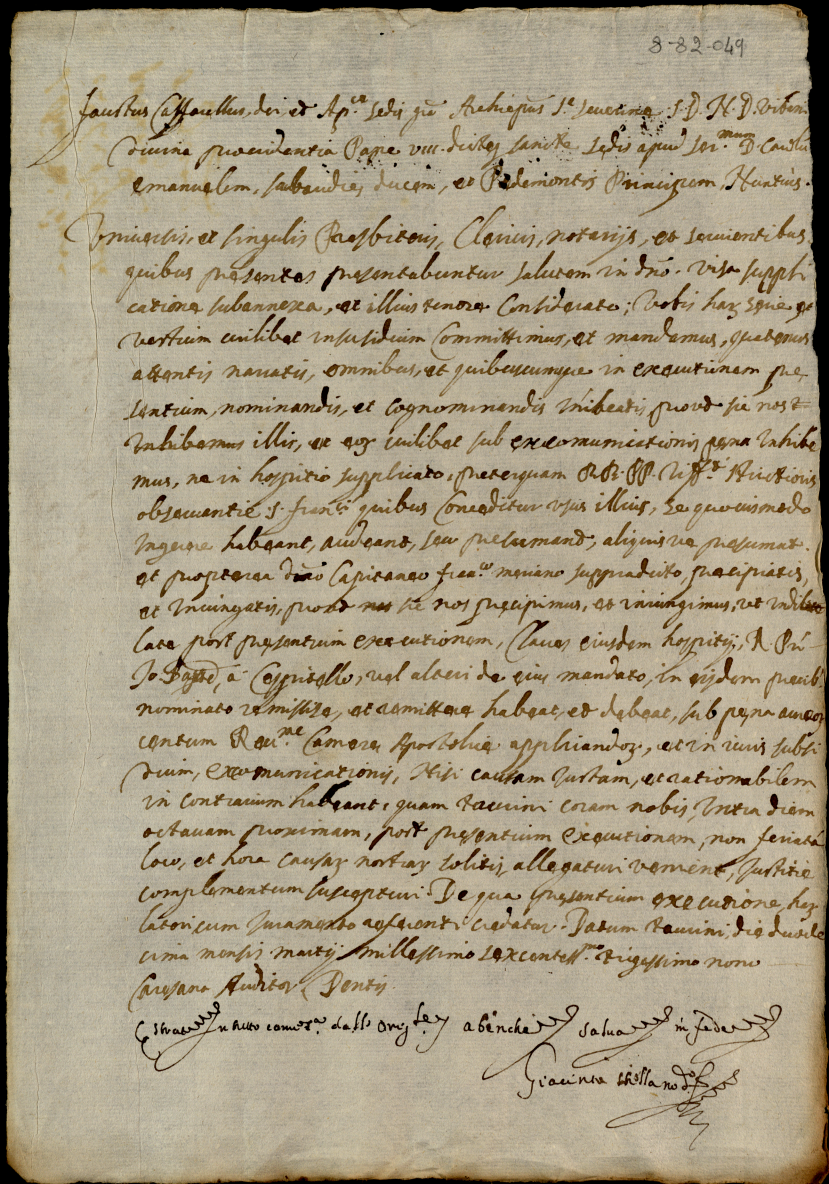 8-82-049
faustus Caffarellus, dei, et Ap.ce sedis gr̃a Archiepũs S.te Severine S.D.N.D. Urbani
divina providentia Pape viii. dicteq sancte sedis apud ser.mum D. Carolu
emanuelem, sabaudieq ducem, et Pedemontis Principem, Nuntius.
Universis, et singulis Presbiteris, Clericis, notarijs, et servientibus
quibus presentes presentabuntur salutem in dño. visa suppli
catione subannexa, et illius tenore Considerato; Vobis harz serie et
vestrum cuilibet insusidium Committimus, et mandamus, quatenus
attentis narratis, omnibus, et quibuscumque in executionem pre
sentium, nominandis, et cognominandis inhibeatis, prout sic nos
Inhibemus illis, et eorz cuilibet sub excomunicationis pena inhibe
mus, ne in hospitio supplicato, preterquam RR. PP. strictioris
observantie S. franc.i quibus Conceditur usus illius, se quovismodo
ingerere habeant, audeant, seu presumant, aliquisve presumat.
et propterea dño Capitaneo fran.co meriano supradicto, precipiatis,
et iniungatis, prout sic nos precipimus, et iniungimus, ut indilate
late post presentium executionem, Claves eiusdem hospitij, R. Pri
Jo. Bapte, à Cespitello, vel alteri de eius mandato, in eisdem precib.
nominato remissise, et remittere habeat, et debeat, sub pena aureorz
centum Rev.me Camere Apostolice applicandorz, et in iuris subsi
dium, excomunicationis, Nisi causam iustam, et rationabilem
in contrarium habeant, quam taurini coram nobis, Intra diem
octavam proximam, post presentium executionem, non feriatã
loco, et hora causarz nostrarz solitis allegaturi venient, Justitie
complementum suscepturi. De qua presentium executione, harz
latori, cum Juramento referenti credatur. Datum taurini, die duode
cima mensis martij millessimo sexcentess.mo trigessimo nono
Caresana Auditor Dentis
Estratto in tutto come sa. dall orig.le a benche salva in fede
Giacinto no.do